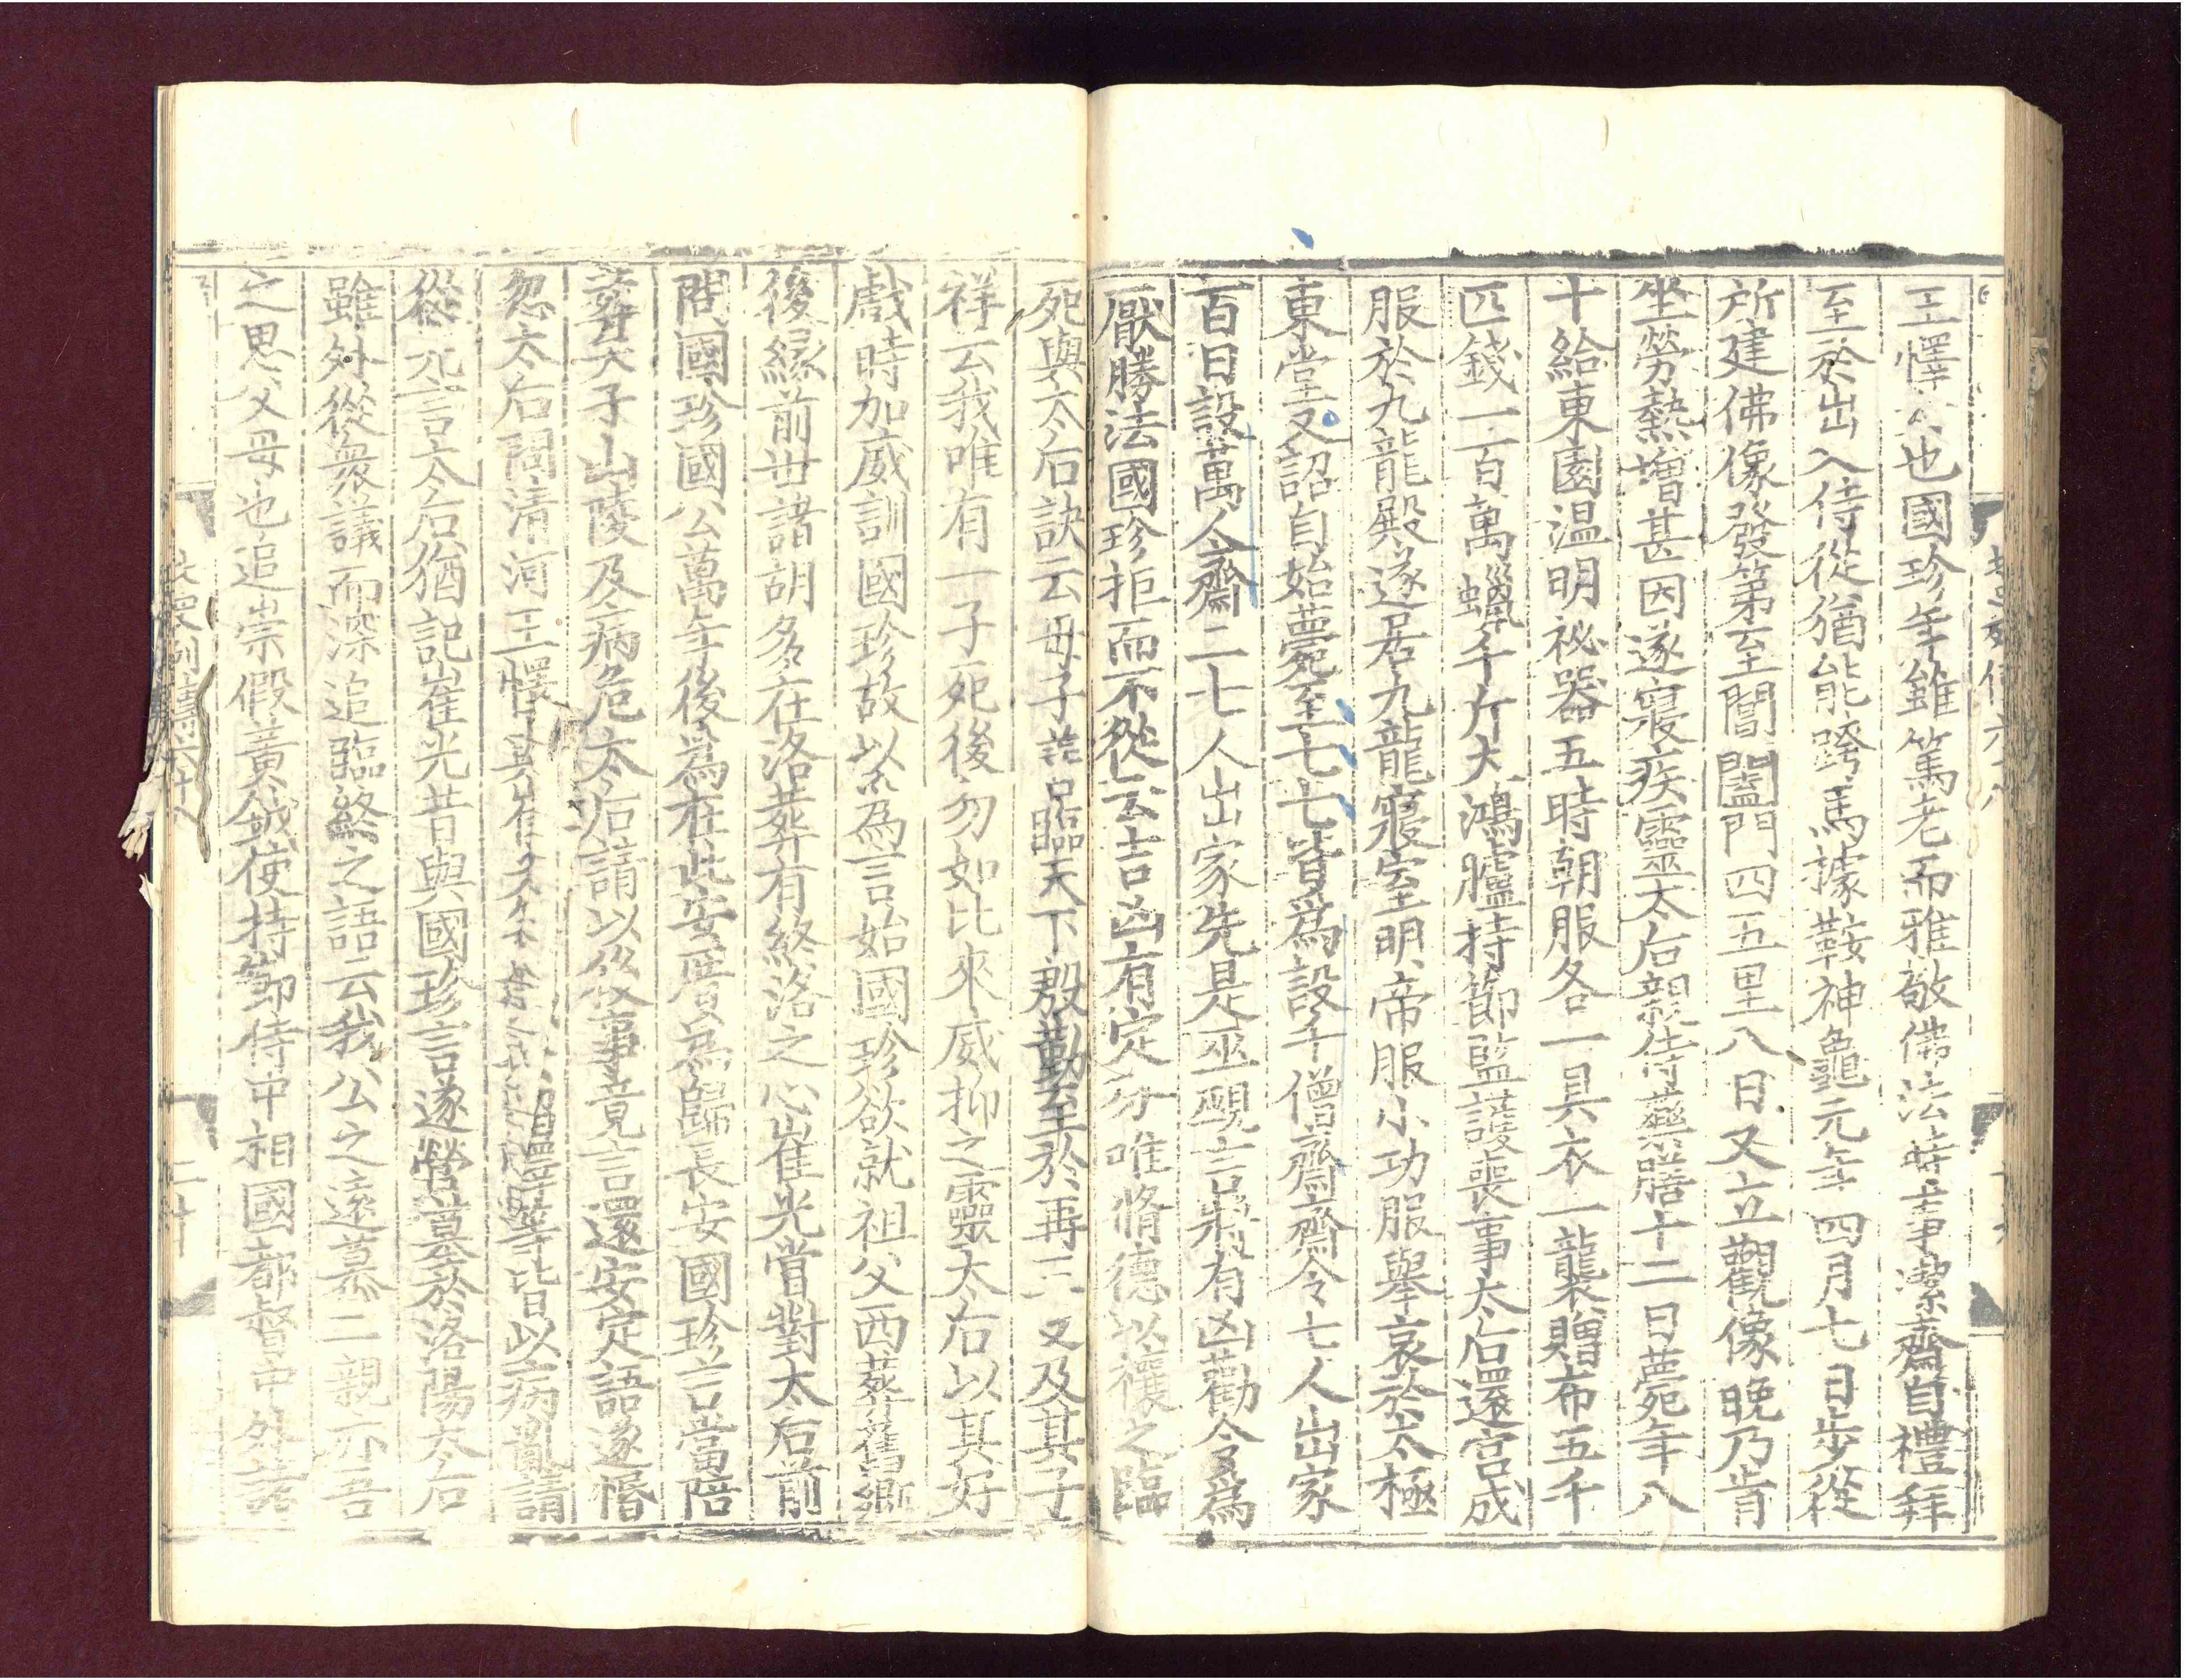 王懌女也國珍年雖篤老而雅敬佛法時事潔齋自禮拜
至於出入侍從猶能跨馬據鞍神龜元年四月七日步從
所建佛像發第至閶闔門四五里八日又立觀像晚乃肯
坐勞熱增甚因遂寢疾靈太后親侍藥膳十二日薨年八
十給東園温明祕器五時朝服各一具衣一襲贈布五千
匹錢一百萬蠟千斤大鴻臚持節監護喪事太后還宮成
服於九龍殿遂居九龍寢室明帝服小功服舉哀於太極
東堂又詔自始薨至七七皆爲設千僧齋齋令七人出家
百日設萬人齋二七人出家先是巫覡言將有凶勸令爲
厭勝法國珍拒而不從云吉凶有定分唯脩德以禳之臨
死與太后訣云母子臨天下殷勤至於再三又及其子
祥云我唯有一子死後勿如比來威抑之靈太后以其好
戲時加威訓國珍故以爲言始國珍欲就祖父西葬舊鄉
後緣前世諸胡多在洛葬有終洛之心崔光嘗對太后前
問國珍國公萬年後爲在此安厝爲歸長安國珍言當陪
葬天子山陵及病危太后請以後事竟言還安定語遂惽
忽太后問清河王懌與崔光等議去留懌等皆以病亂請
從先言太后猶記崔光昔與國珍言遂營墓於洛陽太后
雖外從衆議而深追臨終之語云我公之遠慕二親亦吾
之思父母也追崇假黃鉞使持節侍中相國都督中外諸
后妃列傳六十八
二十